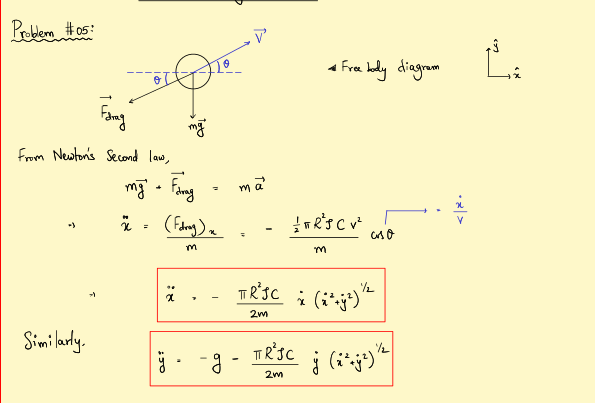 Problem #05:
V⃗
θ
θ
F⃗drag
mg⃗
Free body diagram
ŷ
x̂
From Newton's Second law,
mg⃗ + F⃗drag = m a⃗
⇒ ẍ = (Fdrag)x / m = - (½ π R² ρ C v²) / m cosθ → = ẋ / v
⇒ ẍ = - (π R² ρ C / 2m) ẋ (ẋ² + ẏ²)^1/2
Similarly,
ÿ = - g - (π R² ρ C / 2m) ẏ (ẋ² + ẏ²)^1/2